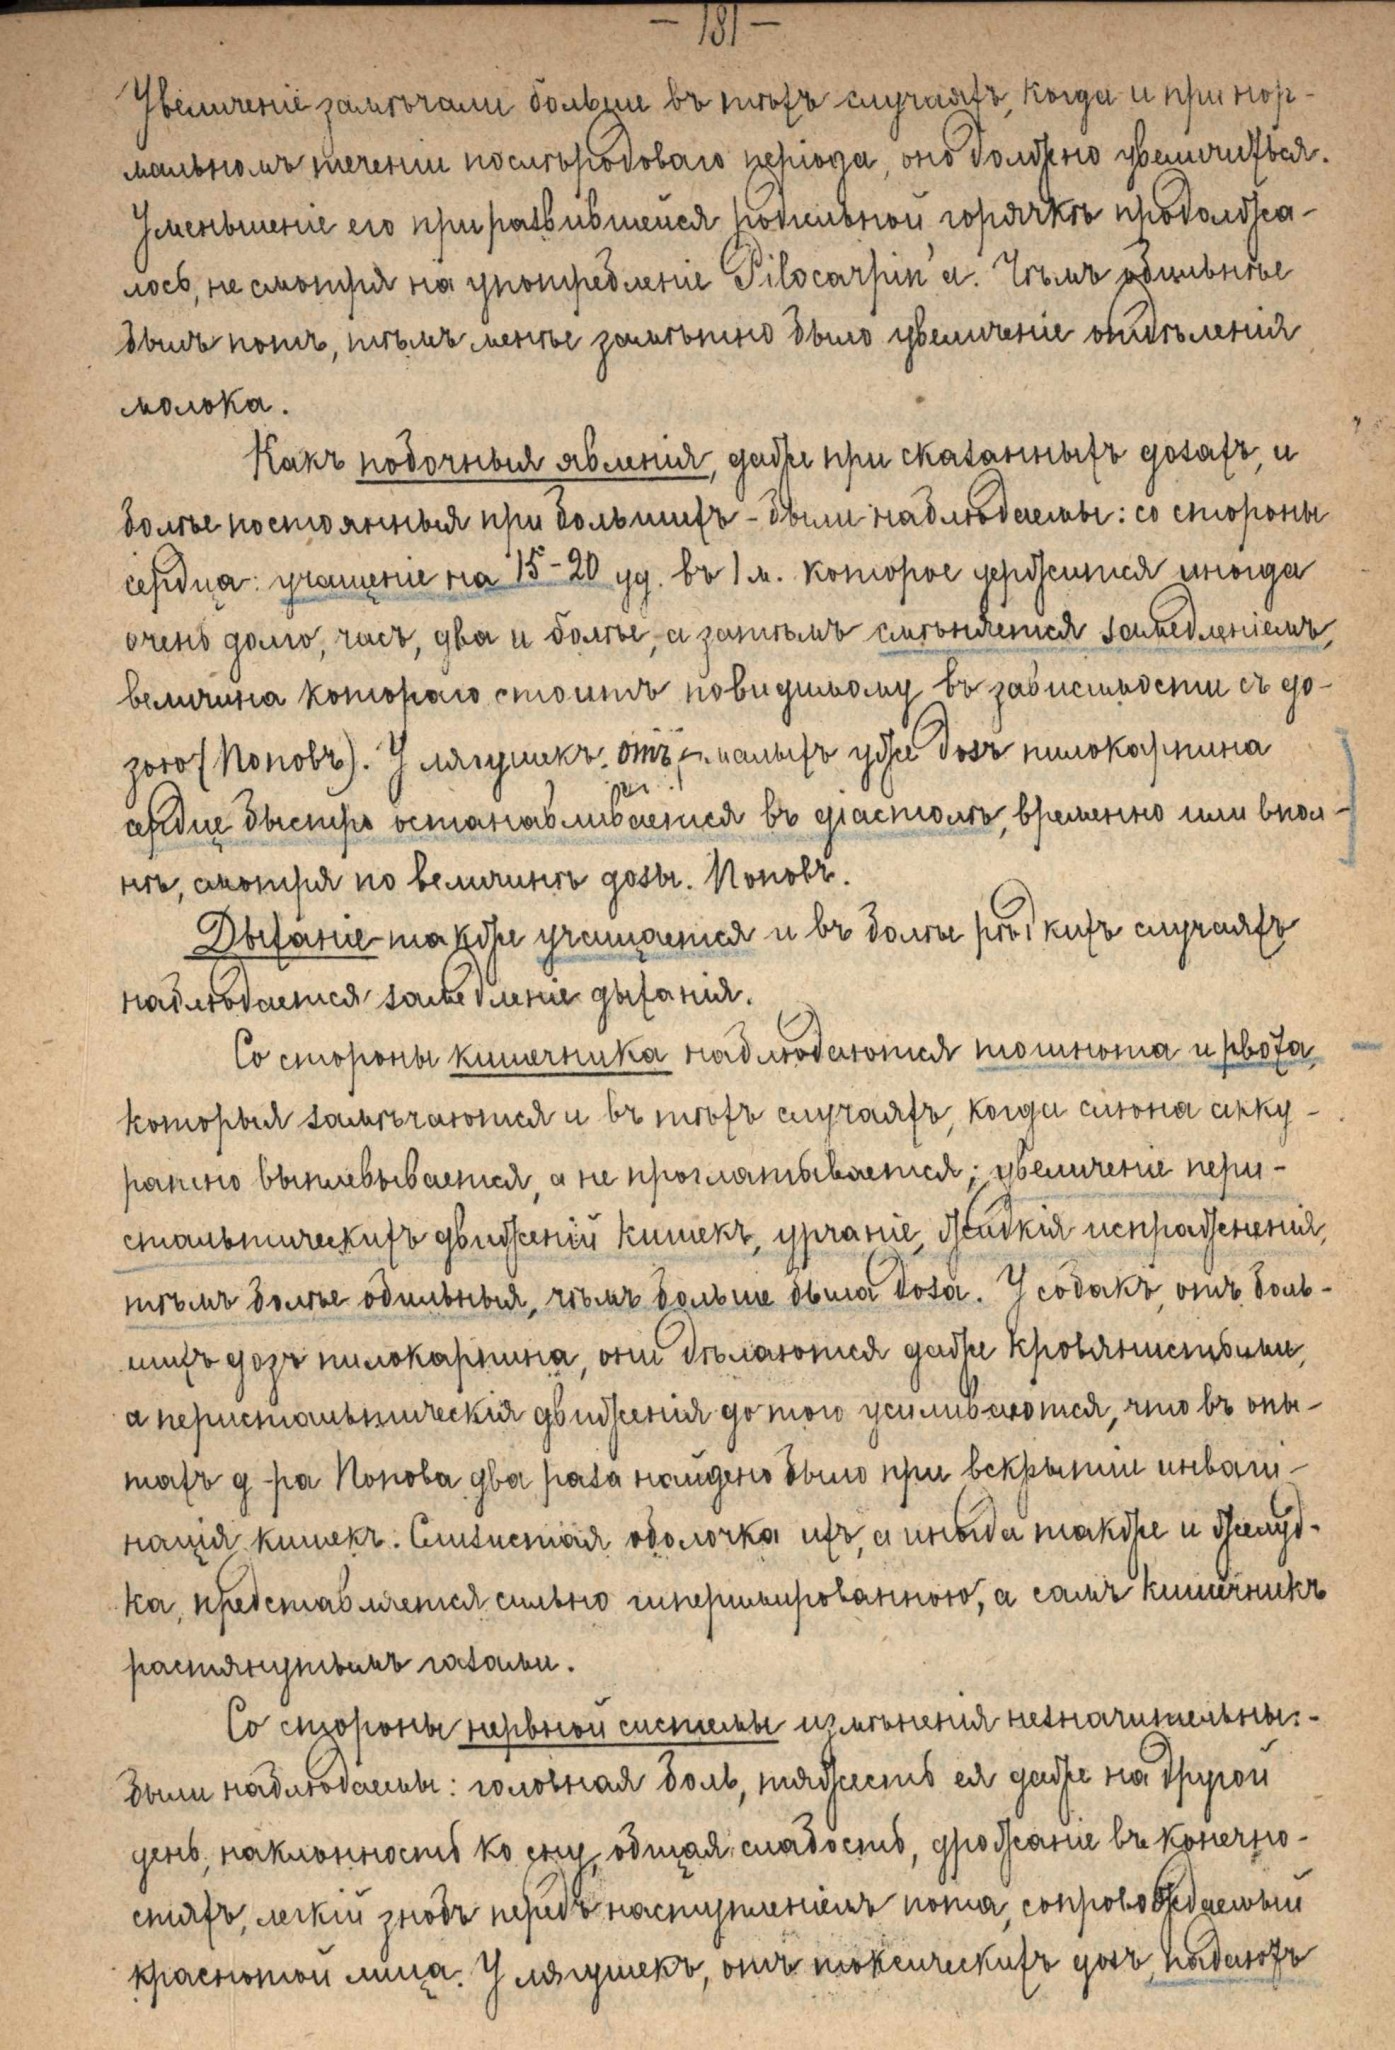 — 181 —
Увеличеніе замѣчали больше въ тѣхъ случаяхъ, когда и при нор-
мальномъ теченіи послѣродоваго періода, оно должно увеличиться.
Уменьшеніе его при развившейся родильной горячкѣ продолжа-
лось, не смотря на употребленіе Pilocarpin'a. Чѣмъ обильнѣе
былъ потъ, тѣмъ менѣе замѣтно было увеличеніе отдѣленія
молока.
Какъ побочныя явленія, даже при сказанныхъ дозахъ, и
болѣе постоянныя при большихъ - были наблюдаемы: со стороны
сердца: учащеніе на 15-20 уд. въ 1 м. которое держится иногда
очень долго, часъ, два и болѣе, а затѣмъ смѣняется замедленіемъ,
величина котораго стоитъ повидимому въ зависимости съ до-
зою (Поповъ). У лягушекъ отъ малыхъ уже дозъ пилокарпина
сердце быстро останавливается въ діастолѣ, временно или впол-
нѣ, смотря по величинѣ дозы. Поповъ.
Дыханіе также учащается и въ болѣе рѣдкихъ случаяхъ
наблюдается замедленіе дыханія.
Со стороны кишечника наблюдаются тошнота и рвота,
которыя замѣчаются и въ тѣхъ случаяхъ, когда слюна акку-
ратно выплевывается, а не проглатывается; увеличеніе пери-
стальтическихъ движеній кишекъ, урчаніе, жидкія испражненія,
тѣмъ болѣе обильныя, чѣмъ больше была доза. У собакъ, отъ боль-
шихъ дозъ пилокарпина, они дѣлаются даже кровянистыми,
а перистальтическія движенія до того усиливаются, что въ опы-
тахъ д-ра Попова два раза найдено было при вскрытіи инваги-
нація кишекъ. Слизистая оболочка ихъ, а иногда также и желуд-
ка, представляется сильно гиперимированною, а самъ кишечникъ
растянутымъ газами.
Со стороны нервной системы измѣненія незначительны:-
были наблюдаемы: головная боль, тяжесть ея даже на другой
день, наклонность ко сну, общая слабость, дрожаніе въ конечно-
стяхъ, легкій знобъ передъ наступленіемъ пота, сопровождаемый
краснотой лица. У лягушекъ, отъ токсическихъ дозъ, падаютъ